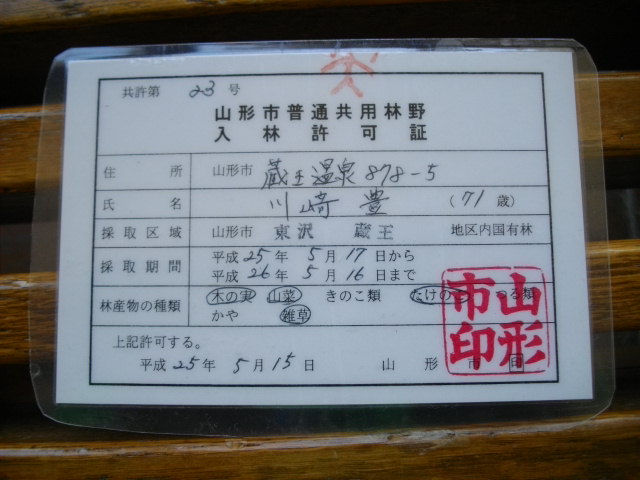 共許第 23 号
山形市普通共用林野
入林許可証
住所 山形市 蔵王温泉878-5
氏名 川崎 豊 (71歳)
採取区域 山形市 東沢 蔵王 地区内国有林
採取期間 平成25年5月17日から
平成26年5月16日まで
林産物の種類 木の実 山菜 きのこ類 たけのこ つる類
かや 雑草
上記許可する。
平成25年5月15日 山形市 印
山形市印